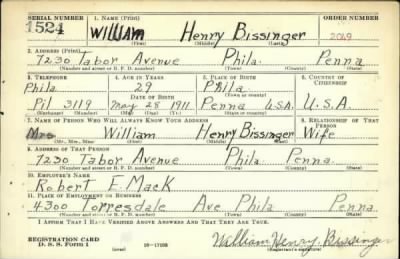 SERIAL NUMBER 1. NAME (Print) ORDER NUMBER
1524 William Henry Bissinger 2049
(First) (Middle) (Last)
2. ADDRESS (Print)
7230 Tabor Avenue Phila. Penna
(Number and street or R. F. D. number) (Town) (County) (State)
3. TELEPHONE 4. AGE IN YEARS 5. PLACE OF BIRTH 6. COUNTRY OF CITIZENSHIP
Phila 29 Phila.
DATE OF BIRTH (Town or county)
Pil 3119 May 28 1911 Penna U.S.A. U.S.A.
(Exchange) (Number) (Mo.) (Day) (Yr.) (State or country)
7. NAME OF PERSON WHO WILL ALWAYS KNOW YOUR ADDRESS 8. RELATIONSHIP OF THAT PERSON
Mrs William Henry Bissinger Wife
(Mr., Mrs., Miss) (First) (Middle) (Last)
9. ADDRESS OF THAT PERSON
7230 Tabor Avenue Phila. Penna.
(Number and street or R. F. D. number) (Town) (County) (State)
10. EMPLOYER'S NAME
Robert E. Mack
11. PLACE OF EMPLOYMENT OR BUSINESS
4300 Torresdale Ave Phila Penna.
(Number and street or R. F. D. number) (Town) (County) (State)
I AFFIRM THAT I HAVE VERIFIED ABOVE ANSWERS AND THAT THEY ARE TRUE.
REGISTRATION CARD
D. S. S. Form 1 (over) William Henry Bissinger
(Registrant's signature)